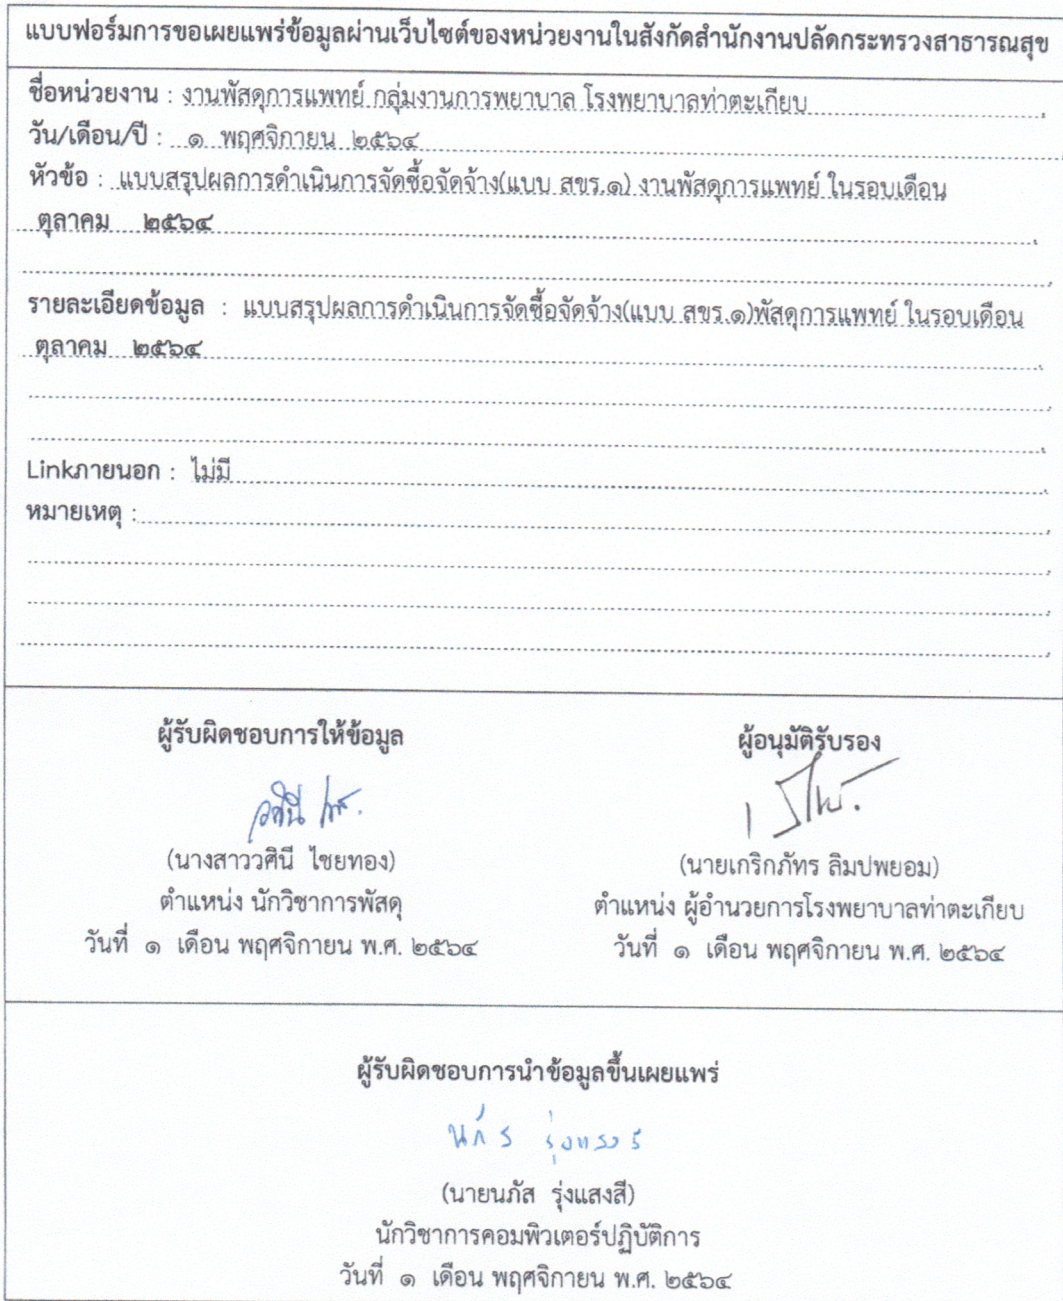 แบบฟอร์มการขอเผยแพร่ข้อมูลผ่านเว็บไซต์ของหน่วยงานในสังกัดสำนักงานปลัดกระทรวงสาธารณสุข
ชื่อหน่วยงาน : งานพัสดุการแพทย์ กลุ่มงานการพยาบาล โรงพยาบาลท่าตะเกียบ
วัน/เดือน/ปี : ๑ พฤศจิกายน ๒๕๖๔
หัวข้อ : แบบสรุปผลการดำเนินการจัดซื้อจัดจ้าง(แบบ สขร.๑) งานพัสดุการแพทย์ ในรอบเดือน
ตุลาคม ๒๕๖๔
รายละเอียดข้อมูล : แบบสรุปผลการดำเนินการจัดซื้อจัดจ้าง(แบบ สขร.๑)พัสดุการแพทย์ ในรอบเดือน
ตุลาคม ๒๕๖๔
Linkภายนอก : ไม่มี
หมายเหตุ :
ผู้รับผิดชอบการให้ข้อมูล
วศินี
(นางสาววศินี ไชยทอง)
ตำแหน่ง นักวิชาการพัสดุ
วันที่ ๑ เดือน พฤศจิกายน พ.ศ. ๒๕๖๔
ผู้อนุมัติรับรอง
(นายเกริกภัทร ลิมปพยอม)
ตำแหน่ง ผู้อำนวยการโรงพยาบาลท่าตะเกียบ
วันที่ ๑ เดือน พฤศจิกายน พ.ศ. ๒๕๖๔
ผู้รับผิดชอบการนำข้อมูลขึ้นเผยแพร่
(นายนภัส รุ่งแสงสี)
นักวิชาการคอมพิวเตอร์ปฏิบัติการ
วันที่ ๑ เดือน พฤศจิกายน พ.ศ. ๒๕๖๔